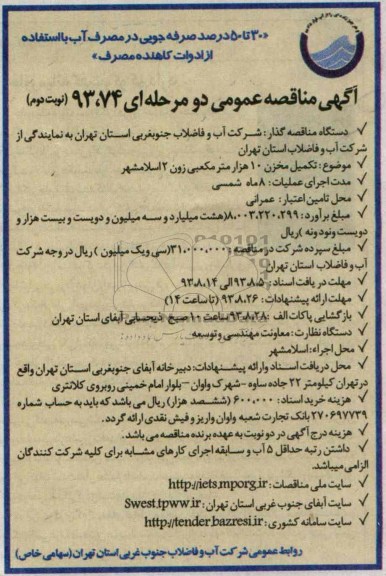 «۳۰ تا ۵۰ درصد صرفه جویی در مصرف آب با استفاده
از ادوات کاهنده مصرف»
آگهی مناقصه عمومی دو مرحله ای ۹۳،۷۴ (نوبت دوم)
✓ دستگاه مناقصه گذار: شرکت آب و فاضلاب جنوبغربی استان تهران به نمایندگی از
شرکت آب و فاضلاب استان تهران
✓ موضوع: تکمیل مخزن ۱۰ هزار متر مکعبی زون ۲ اسلامشهر
✓ مدت اجرای عملیات: ۸ ماه شمسی
✓ محل تامین اعتبار: عمرانی
✓ مبلغ برآورد: ۸،۰۰۳،۲۲۰،۲۹۹ (هشت میلیارد و سه میلیون و دویست و بیست هزار و
دویست و نود و نه) ریال
✓ مبلغ سپرده شرکت در مناقصه: ۳۱،۰۰۰،۰۰۰ (سی و یک میلیون) ریال در وجه شرکت
آب و فاضلاب استان تهران
✓ مهلت دریافت اسناد: ۹۳،۸،۵ الی ۹۳،۸،۱۴
✓ مهلت ارائه پیشنهادات: ۹۳،۸،۲۶ (تا ساعت ۱۴)
✓ بازگشایی پاکات الف: ۹۳،۸،۲۸ ساعت ۱۰ صبح ذیحسابی آبفای استان تهران
✓ دستگاه نظارت: معاونت مهندسی و توسعه
✓ محل اجراء: اسلامشهر
✓ محل دریافت اسناد و ارائه پیشنهادات: دبیرخانه آبفای جنوبغربی استان تهران واقع
در تهران کیلومتر ۲۲ جاده ساوه - شهرک واوان - بلوار امام خمینی روبروی کلانتری
✓ هزینه خرید اسناد: ۶۰۰،۰۰۰ (ششصد هزار) ریال می باشد که باید به حساب شماره
۲۷۰۶۹۷۷۳۹ بانک تجارت شعبه واوان واریز و فیش نقدی ارائه گردد.
✓ هزینه درج آگهی در دو نوبت به عهده برنده مناقصه می باشد.
✓ داشتن رتبه حداقل ۵ آب و سابقه اجرای کارهای مشابه برای کلیه شرکت کنندگان
الزامی میباشد.
✓ سایت ملی مناقصات: http://iets.mporg.ir
✓ سایت آبفای جنوب غربی استان تهران: Swest.tpww.ir
✓ سایت سامانه کشوری: http://tender.bazresi.ir
روابط عمومی شرکت آب و فاضلاب جنوب غربی استان تهران (سهامی خاص)